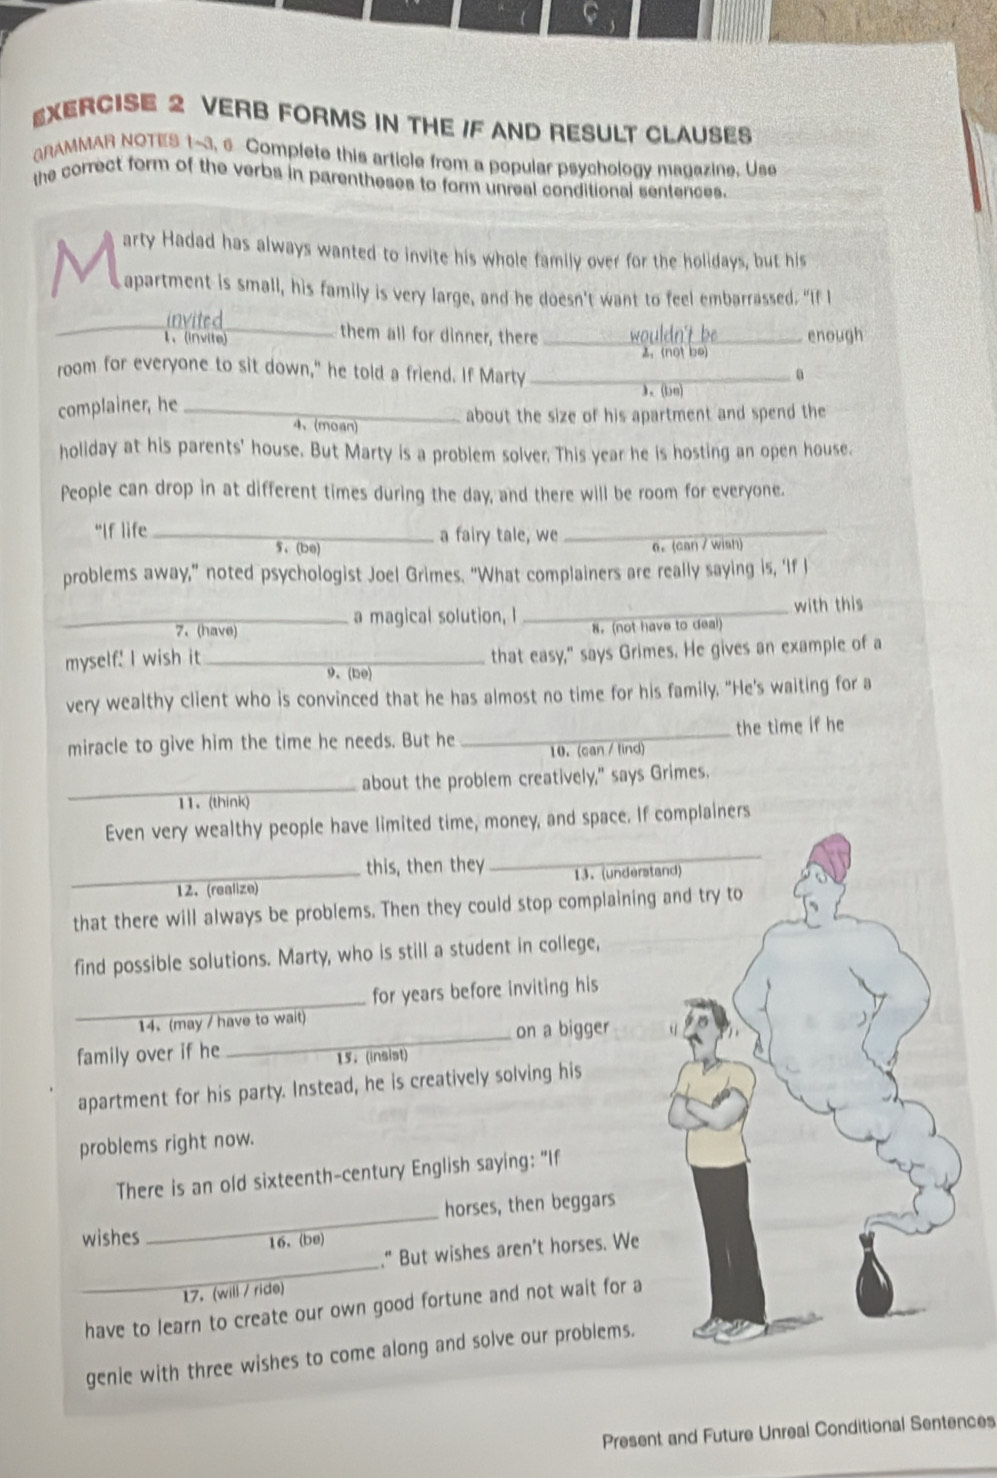 EXERCISE 2 VERB FORMS IN THE IF AND RESULT CLAUSES
GRAMMAR NOTES 1-3, 6 Complete this article from a popular psychology magazine. Use
the correct form of the verbs in parentheses to form unreal conditional sentences.
Marty Hadad has always wanted to invite his whole family over for the holidays, but his
apartment is small, his family is very large, and he doesn't want to feel embarrassed. "If I
invited them all for dinner, there wouldn't be enough
1. (invite) 2. (not be)
room for everyone to sit down," he told a friend. If Marty ____ a
3. (be)
complainer, he ____ about the size of his apartment and spend the
4. (moan)
holiday at his parents' house. But Marty is a problem solver. This year he is hosting an open house.
People can drop in at different times during the day, and there will be room for everyone.
"If life ____ a fairy tale, we ____
5. (be) 6. (can / wish)
problems away," noted psychologist Joel Grimes. "What complainers are really saying is, 'If I
____ a magical solution, I ____ with this
7. (have) 8. (not have to deal)
myself.' I wish it ____ that easy," says Grimes. He gives an example of a
9. (be)
very wealthy client who is convinced that he has almost no time for his family. "He's waiting for a
miracle to give him the time he needs. But he ____ the time if he
10. (can / find)
____ about the problem creatively," says Grimes.
11. (think)
Even very wealthy people have limited time, money, and space. If complainers
____ this, then they ____
12. (realize) 13. (understand)
that there will always be problems. Then they could stop complaining and try to
find possible solutions. Marty, who is still a student in college,
____ for years before inviting his
14. (may / have to wait)
family over if he ____ on a bigger
15. (insist)
apartment for his party. Instead, he is creatively solving his
problems right now.
There is an old sixteenth-century English saying: "If
wishes ____ horses, then beggars
16. (be)
____." But wishes aren't horses. We
17. (will / ride)
have to learn to create our own good fortune and not wait for a
genie with three wishes to come along and solve our problems.
Present and Future Unreal Conditional Sentences